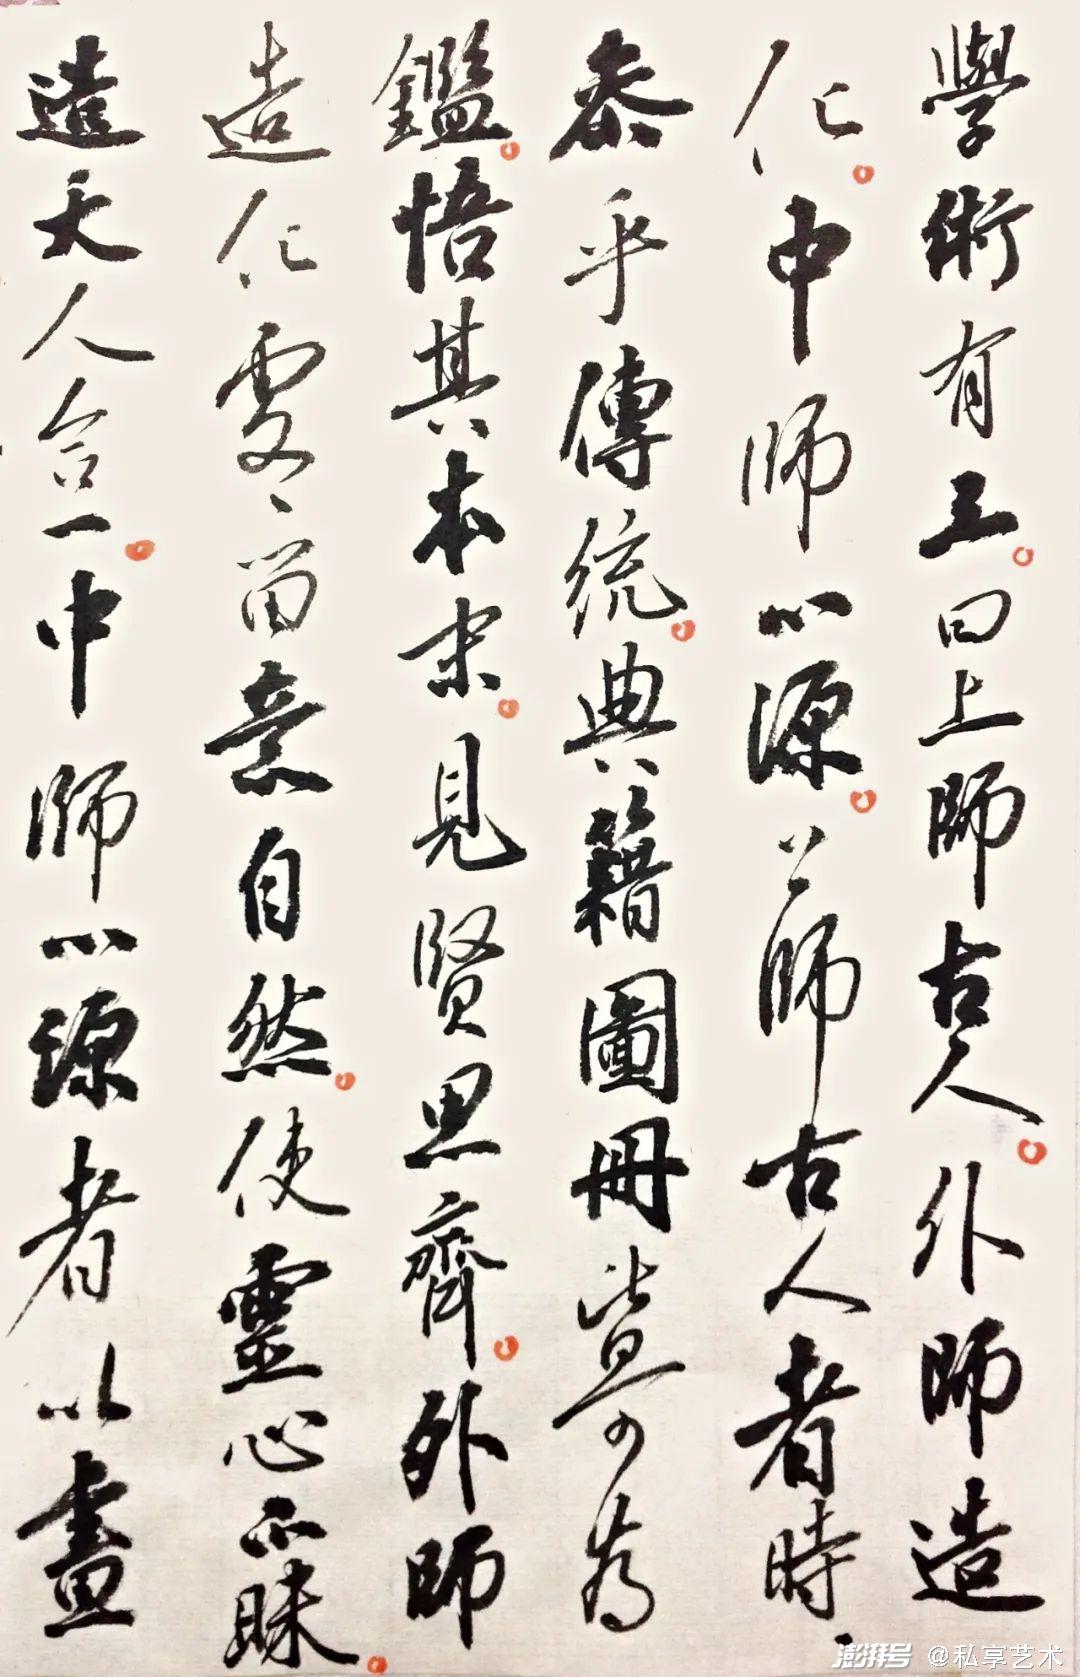 學術有三曰上師古人外師造
化中師心源上師古人者時々
叅乎傳統典籍圖冊皆可為
鑑悟其本見賢思齊外師
造化處々留意自然使靈心不昧
達天人合一中師心源者以畫
澎湃号 @私享艺术